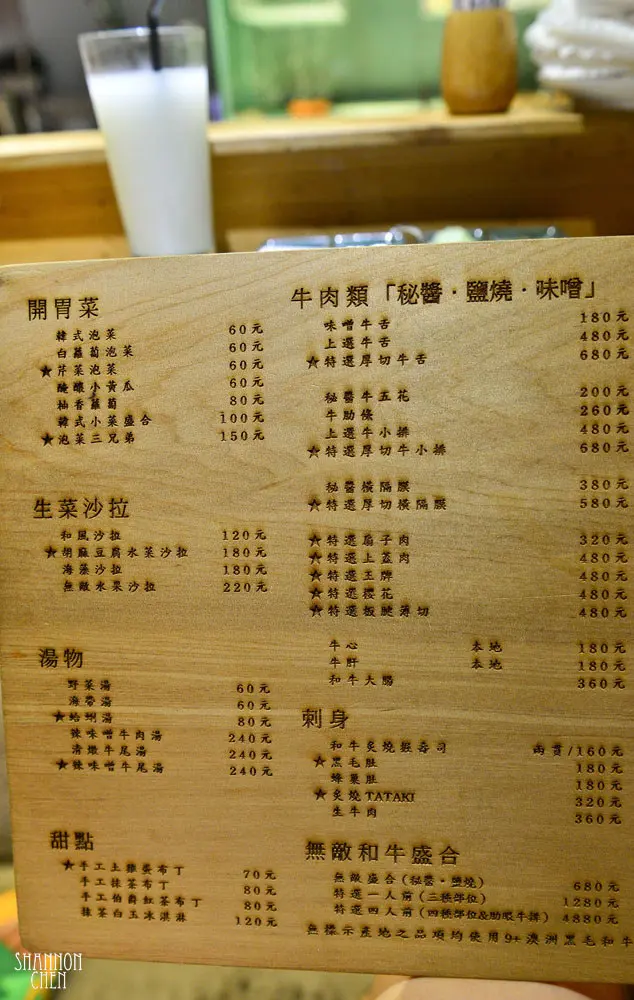 開胃菜
韓式泡菜 60元
白蘿蔔泡菜 60元
★芹菜泡菜 60元
醃釀小黃瓜 60元
柚香蘿蔔 80元
韓式小菜盛合 100元
★泡菜三兄弟 150元
生菜沙拉
和風沙拉 120元
★胡麻豆腐水菜沙拉 180元
海藻沙拉 180元
無敵水果沙拉 220元
湯物
野菜湯 60元
海帶湯 60元
★蛤蜊湯 80元
辣味噌牛肉湯 240元
清燉牛尾湯 240元
★辣味噌牛尾湯 240元
甜點
★手工土雞蛋布丁 70元
手工抹茶布丁 80元
手工伯爵紅茶布丁 80元
抹茶白玉冰淇淋 120元
牛肉類「秘醬·鹽燒·味噌」
味噌牛舌 180元
上選牛舌 480元
★特選厚切牛舌 680元
秘醬牛五花 200元
牛肋條 260元
上選牛小排 480元
★特選厚切牛小排 680元
秘醬橫隔膜 380元
★特選厚切橫隔膜 580元
★特選扇子肉 320元
★特選上蓋肉 480元
★特選王牌 480元
★特選櫻花 480元
★特選板腱薄切 480元
牛心 本地 180元
牛肝 本地 180元
和牛大腸 360元
刺身
和牛炙燒握壽司 兩貫/160元
★黑毛肚 180元
蜂巢肚 180元
★炙燒TATAKI 320元
生牛肉 360元
無敵和牛盛合
無敵盛合(秘醬·鹽燒) 680元
特選一人前(三種部位) 1280元
特選四人前(四種部位&肋眼牛排) 4880元
無標示產地之品項均使用9+澳洲黑毛和牛
SHANNON
CHEN